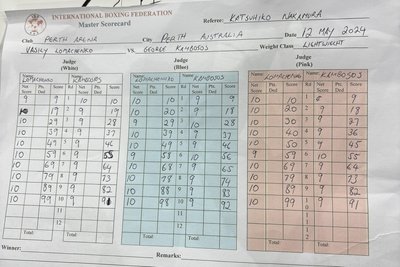 INTERNATIONAL BOXING FEDERATION
Master Scorecard
Referee: KATSUHIKO NAKAMURA
Club PERTH ARENA City PERTH AUSTRALIA Date 12 MAY 2024
VASILY LOMACHENKO VS. GEORGE KAMBOSOS Weight Class LIGHTWEIGHT
Judge (White) Judge (Blue) Judge (Pink)
LOMACHENKO KAMBOSOS Name: LOMACHENKO Name: KAMBOSOS Name: LOMACHENKO Name: KAMBOSOS
Net Score Pts. Ded Score Rd Net Score Pts. Ded Score Net Score Pts. Ded Score Rd Net Score Pts. Ded Score Net Score Pts. Ded Score Rd Net Score Pts. Ded Score
9 9 1 10 10 10 10 1 9 10 10 1 9
19 2 19 10 20 2 9 18 10 20 2 9 18
10 29 3 9 28 10 29 3 10 28 10 30 3 9 27
10 39 4 9 37 10 39 4 9 37 10 40 4 9 36
10 49 5 9 46 10 49 5 9 46 10 50 5 9 45
10 59 6 9 55 9 58 6 10 56 9 59 6 10 55
10 69 7 9 64 10 68 7 9 65 10 69 7 9 64
10 79 8 9 73 10 78 8 9 74 10 79 8 9 73
10 89 9 9 82 10 88 9 9 83 10 89 9 9 82
10 99 10 9 91 10 98 10 9 92 10 99 10 9 91
11 11 11
12 12 12
Total Total Total Total Total Total
Winner: Remarks: